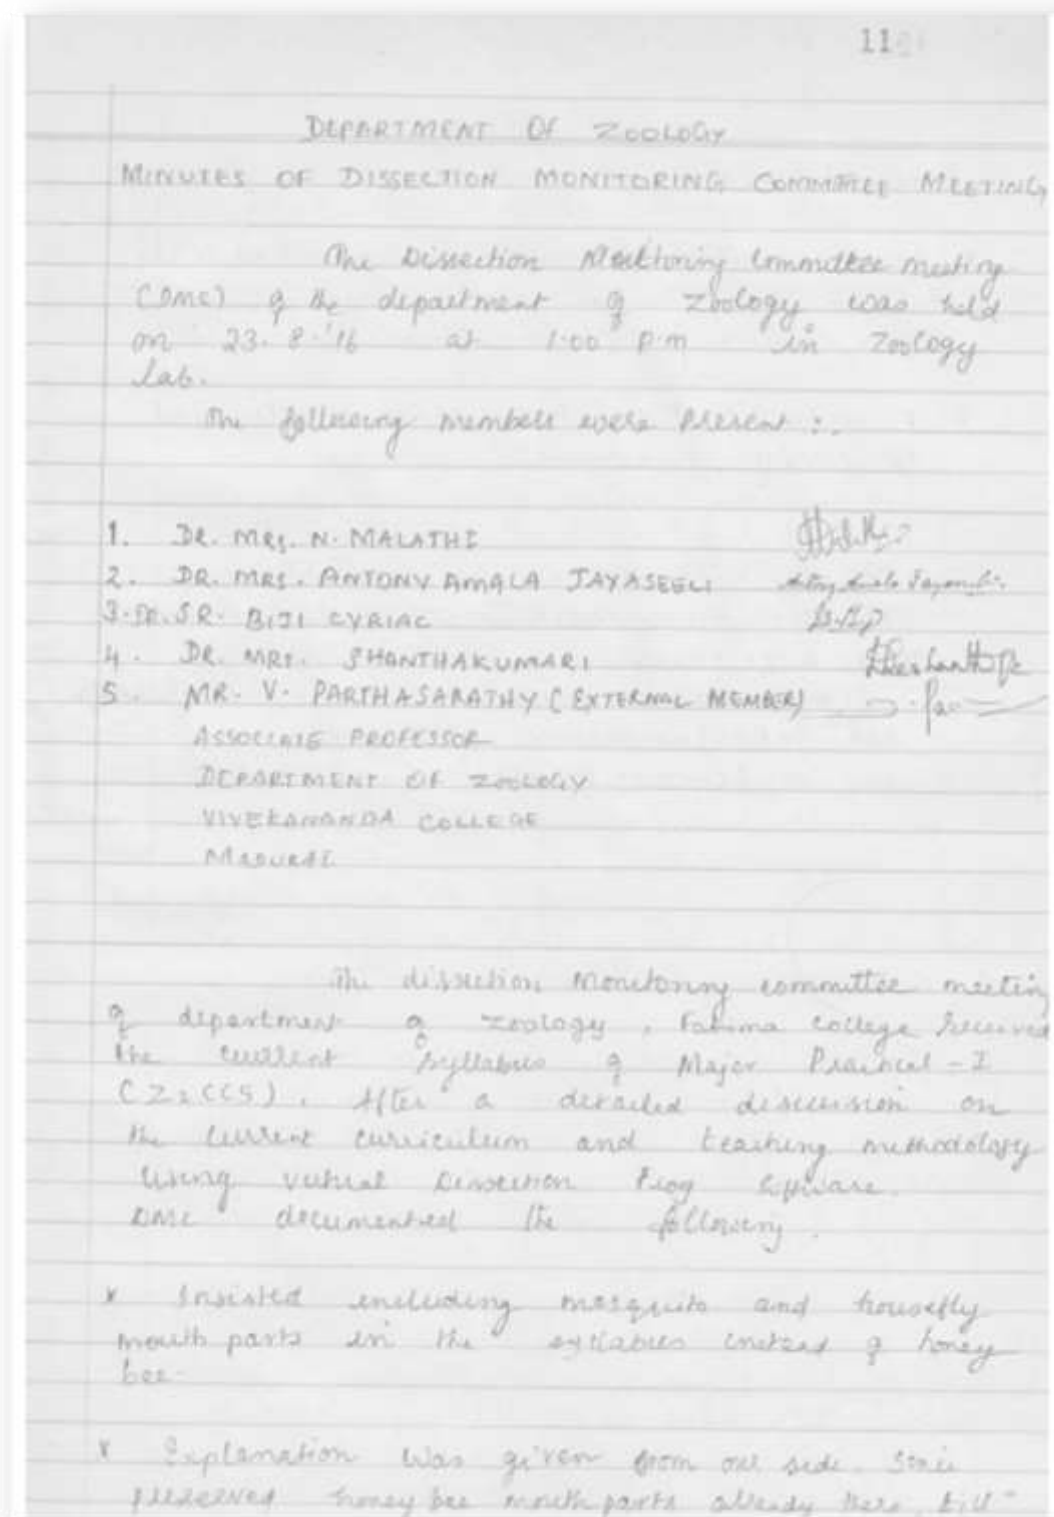 11
DEPARTMENT OF ZOOLOGY
MINUTES OF DISSECTION MONITORING COMMITTEE MEETING
The Dissection Monitoring Committee meeting
(DMC) of the department of Zoology was held
on 23.8.'16 at 1.00 p.m in Zoology
Lab.
The following members were Present :-
1. DR. MRS. N. MALATHI
2. DR. MRS. ANTONY AMALA JAYASEELI
3. DR. SR. BIJI CYRIAC
4. DR. MRS. SHANTHAKUMARI
5. MR. V. PARTHASARATHY (EXTERNAL MEMBER)
ASSOCIATE PROFESSOR
DEPARTMENT OF ZOOLOGY
VIVEKANANDA COLLEGE
MADURAI
The dissection monitoring committee meeting
of department of zoology, Fatima College
the current syllabus of Major Practical - I
After a detailed discussion on
the current curriculum and teaching methodology
using virtual Dissection Frog software.
DMC documented the following.
* Insisted including mosquito and housefly
mouth parts in the syllabus instead of honey
bee.
* Explanation was given from our side. Since
preserved honey bee mouth parts already there, till